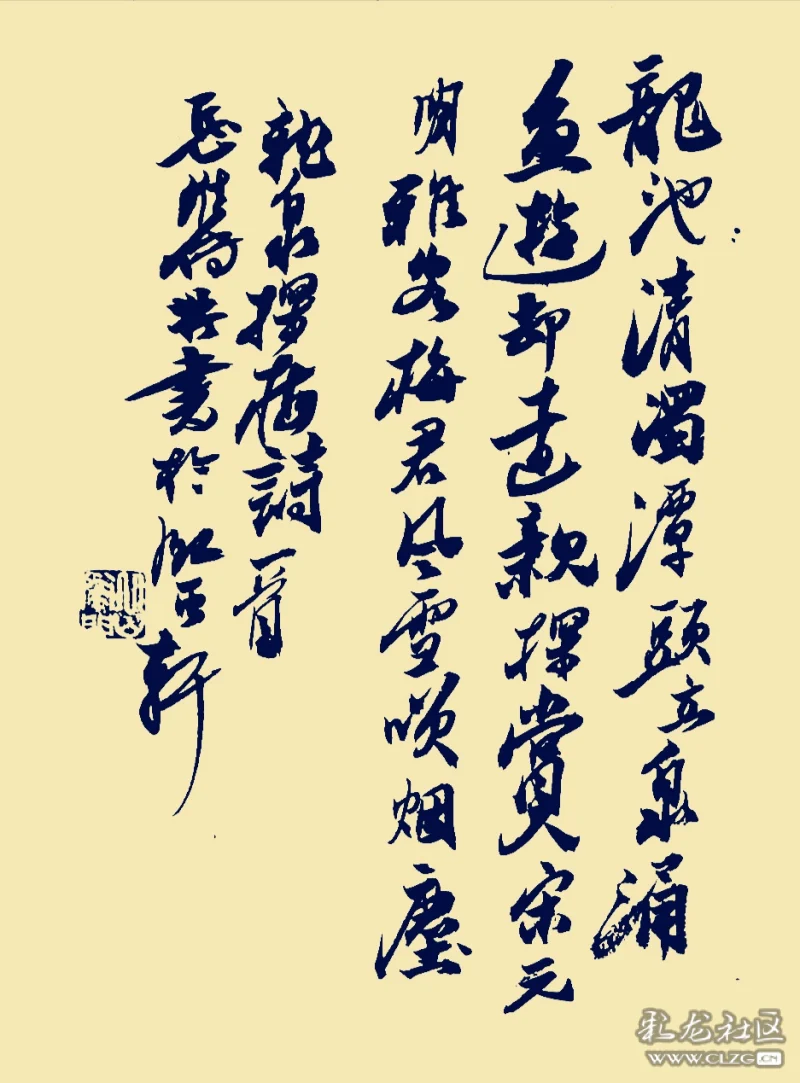 龍池清濁潭頭立泉涌
魚遊却走親探賞宋元
明雅客梅君風雪嘆烟塵
龍泉探梅詩一首
書於 軒
彩龙社区
WWW.CLZG.CN